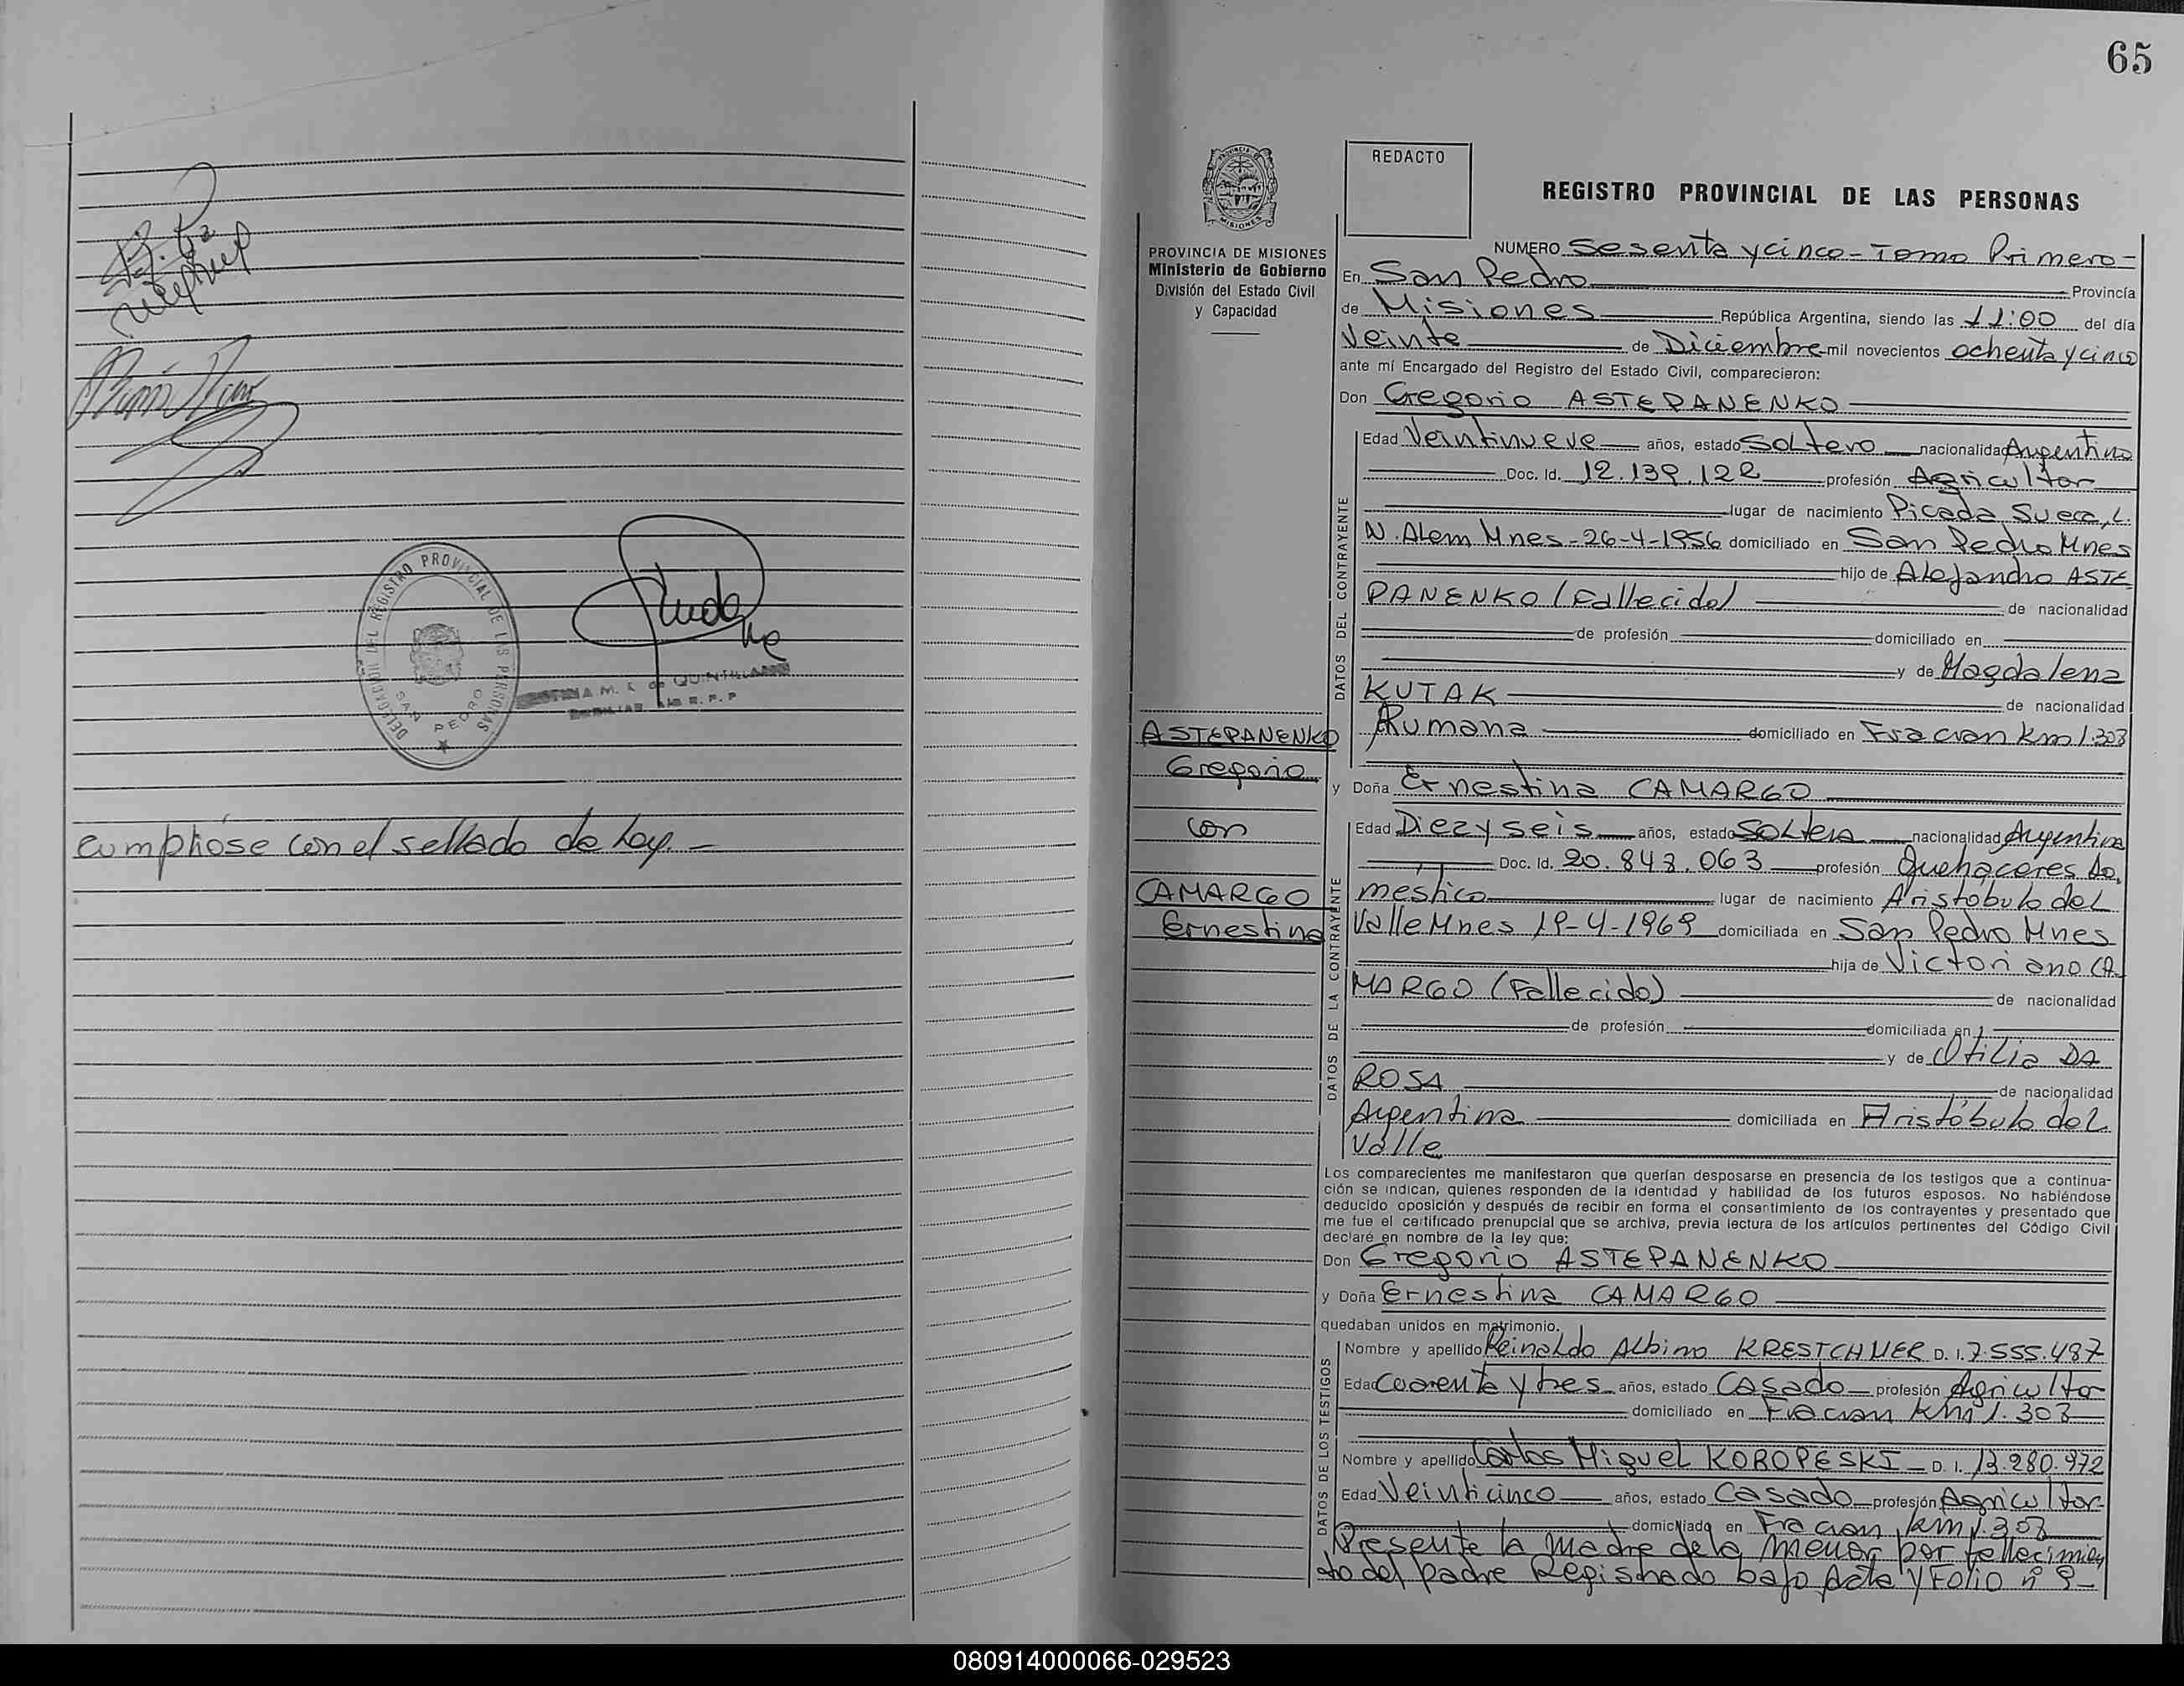 cumplióse con el sellado de Ley. -
DELEGACION DEL REGISTRO PROVINCIAL DE LAS PERSONAS
SAN PEDRO
M. L. de QUINTILLAN
65
REDACTO
REGISTRO PROVINCIAL DE LAS PERSONAS
PROVINCIA DE MISIONES
Ministerio de Gobierno
División del Estado Civil
y Capacidad
ASTEPANENKO
Gregorio
con
CAMARGO
Ernestina
NUMERO Sesenta y cinco - Tomo Primero -
En San Pedro Provincia
de Misiones República Argentina, siendo las 11:00 del día
Veinte de Diciembre mil novecientos ochenta y cinco
ante mí Encargado del Registro del Estado Civil, comparecieron:
Don Gregorio ASTEPANENKO
DATOS DEL CONTRAYENTE
Edad Veintinueve años, estado Soltero nacionalidad Argentino
Doc. Id. 12.139.122 profesión Agricultor
lugar de nacimiento Picada Sueca, L.
N. Alem Mnes - 26-4-1956 domiciliado en San Pedro Mnes
hijo de Alejandro ASTE
PANENKO (Fallecido) de nacionalidad
de profesión domiciliado en
y de Magdalena
KUTAK de nacionalidad
Rumana domiciliado en Fracran km 1.303
y Doña Ernestina CAMARGO
DATOS DE LA CONTRAYENTE
Edad Diez y seis años, estado Soltera nacionalidad Argentina
Doc. Id. 20.843.063 profesión Quehaceres Do,
mestico lugar de nacimiento Aristóbulo del
Valle Mnes 19-4-1969 domiciliada en San Pedro Mnes
hija de Victoriano CA
MARGO (Fallecido) de nacionalidad
de profesión domiciliada en
y de Otilia DA
ROSA de nacionalidad
Argentina domiciliada en Aristóbulo del
Valle
Los comparecientes me manifestaron que querían desposarse en presencia de los testigos que a continua-
ción se indican, quienes responden de la identidad y habilidad de los futuros esposos. No habiéndose
deducido oposición y después de recibir en forma el consentimiento de los contrayentes y presentado que
me fue el certificado prenupcial que se archiva, previa lectura de los artículos pertinentes del Código Civil
declaré en nombre de la ley que:
Don Gregorio ASTEPANENKO
y Doña Ernestina CAMARGO
quedaban unidos en matrimonio.
DATOS DE LOS TESTIGOS
Nombre y apellido Reinaldo Albino KRESTCHMER D. I. 7.555.487
Edad Cuarenta y tres años, estado Casado profesión Agricultor
domiciliado en Fracran Km 1.303
Nombre y apellido Carlos Miguel KOROPESKI D. I. 13.280.972
Edad Veinticinco años, estado Casado profesión Agricultor
domiciliado en Fracran km 1.303
Presente la madre de la menor por fallecimien
to del padre Registrado bajo Acta y Folio nº 9-
080914000066-029523